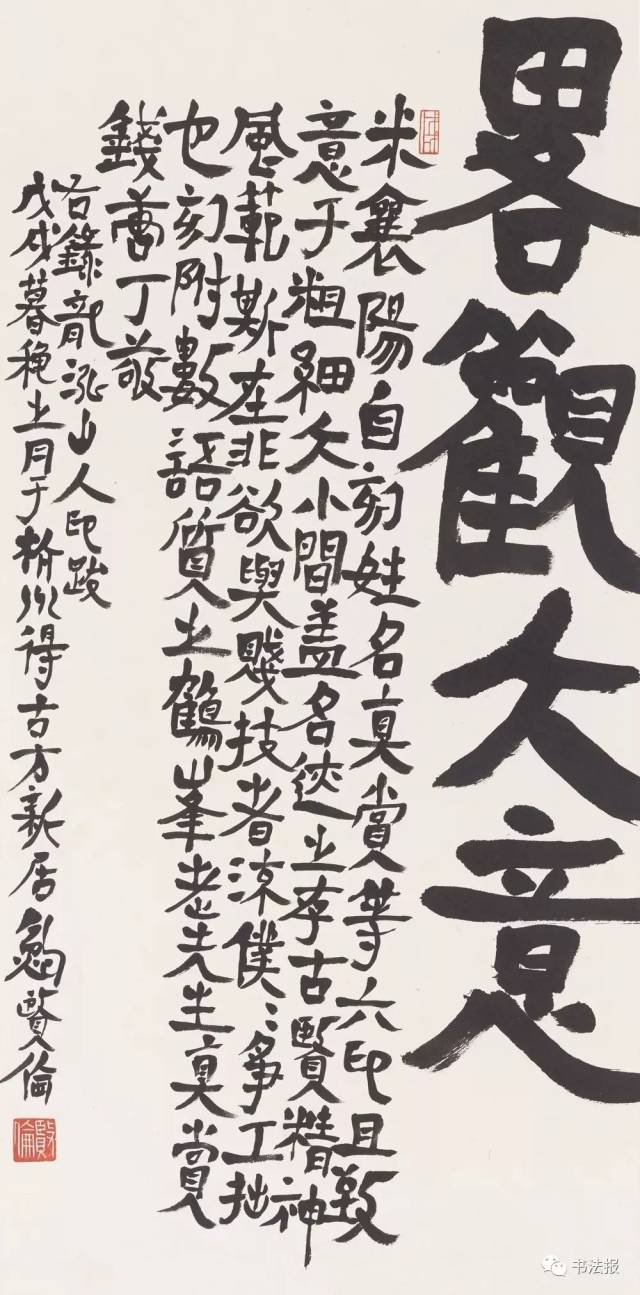 畧觀大意
米襄陽自刻姓名真賞等六印且致
意于粗細大小間蓋名迹之存古賢精神
風範斯在非欲與賤技者流僕〻爭工拙
也刻附數語質之鶴峯老先生真賞
錢唐丁敬
右錄龍泓山人印跋
戊戌暮穐之月于州得古方新居賢倫
賢倫
书法报